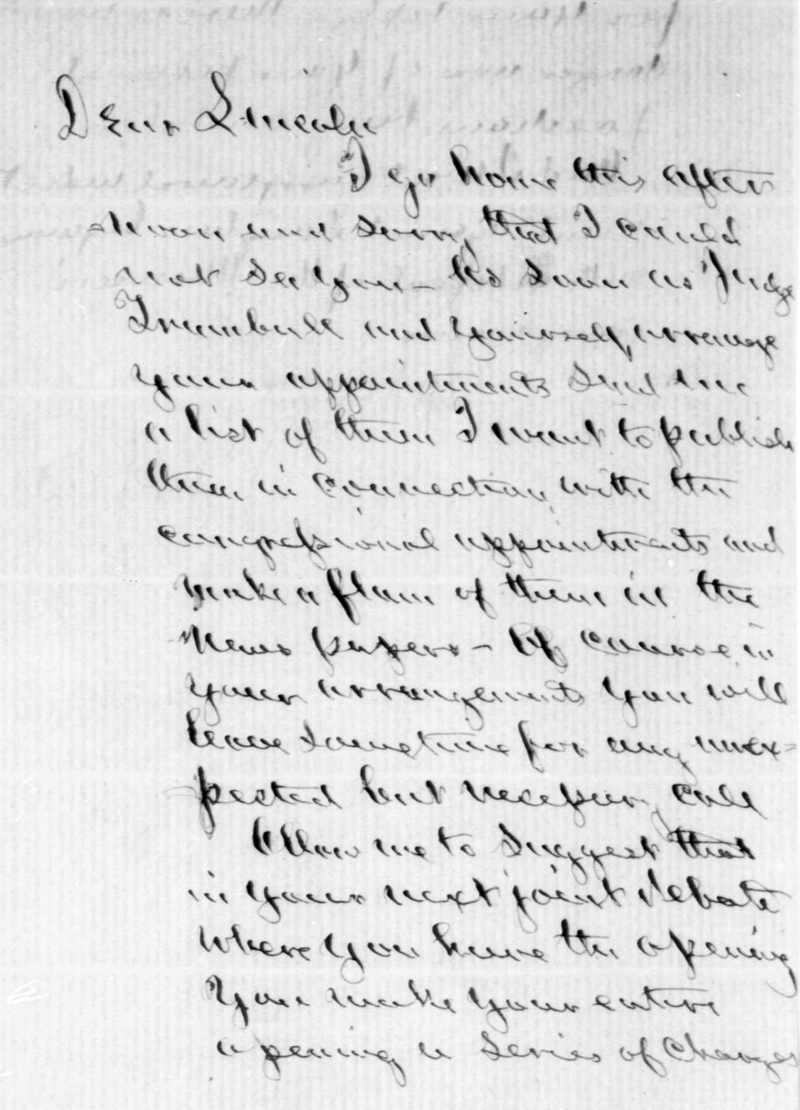 Dear Lincoln
I go home this after
noon and sorry that I could
not see you – As soon as Judge
Trumbull and yourself, arrange
your appointments send me
a list of them I want to publish
them in connection with the
congressional appointments and
make a flam of them in the
News papers – Of course in
your arrangements you will
leave some time for any unex=
pected but necessary call
Allow me to suggest that
in your next joint debate
where you have the opening
You make your entire
opening a series of charges